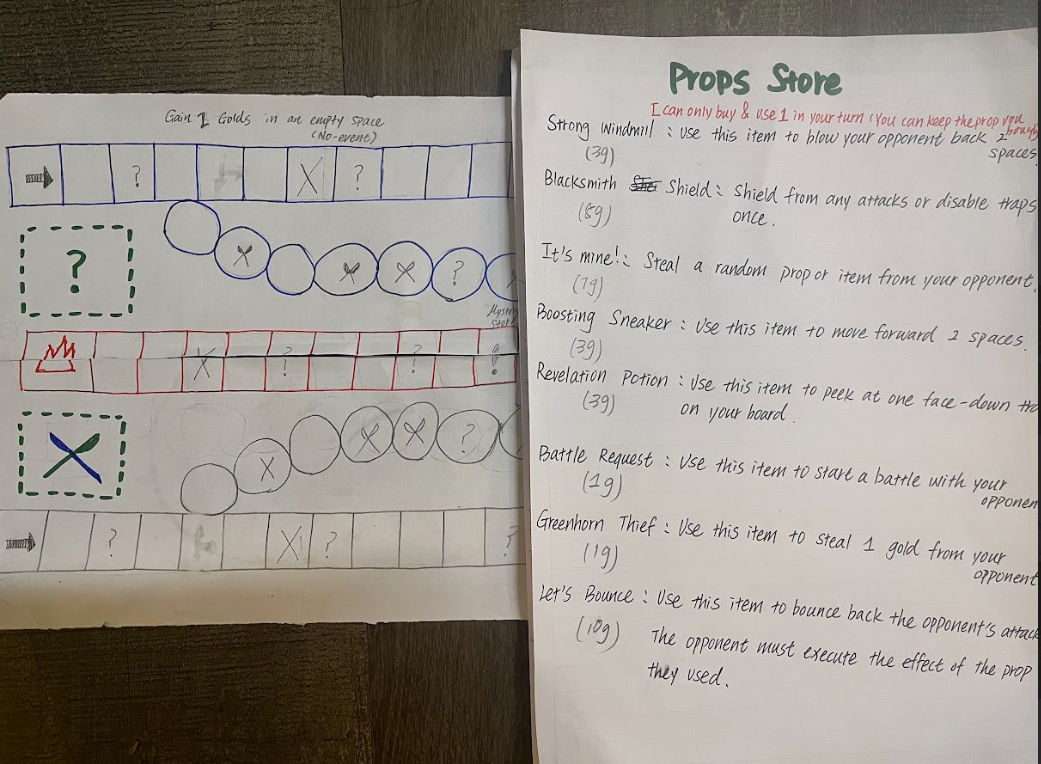 Gain 1 Golds in an empty space
(No-event)
?
X
?
X
X
X
?
?
Mystery
X
?
?
!
X
X
X
?
?
X
?
?
Props Store
I can only buy & use 1 in your turn (You can keep the prop you bought
Strong Windmill : Use this item to blow your opponent back 2
spaces.
(3g)
Blacksmith Shield : Shield from any attacks or disable traps
once.
(8g)
It's mine! : Steal a random prop or item from your opponent.
(7g)
Boosting Sneaker : Use this item to move forward 2 spaces.
(3g)
Revelation Potion : Use this item to peek at one face-down
on your board.
(3g)
Battle Request : Use this item to start a battle with your
opponen
(1g)
Greenhorn Thief : Use this item to steal 1 gold from your
opponent
(1g)
Let's Bounce : Use this item to bounce back the opponent's attack
(10g)
The opponent must execute the effect of the prop
they used.